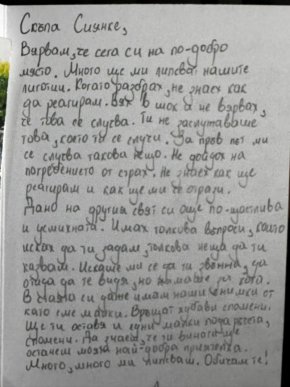 Скъпа Сиянке,
Вярвам, че сега си на по-добро
място. Много ще ми липсват нашите
лиготии. Когато разбрах, не знаех как
да реагирам. Бях в шок и не вярвах,
че това се случва. Ти не заслужаваше
това, което ти се случи. За пръв път ми
се случва такова нещо. Не дойдох на
погребението от страх. Не знаех как ще
реагирам и как ще ми се отрази.
Дано на другия свят си още по-щастлива
и усмихната. Имах толкова въпроси, които
исках да ти задам, толкова неща да ти
казвам. Искаше ми се да ти звънна, да
дойда да те видя, но нямаше за кога.
В случая си даже имам наши снимки от
като сме малки. Връщат хубави спомени.
Ще ти оставя и едни малки подаръчета,
спомени. Да знаеш, че ти винаги ще
останеш моята най-добра приятелка.
Много, много ми липсваш. Обичам те!